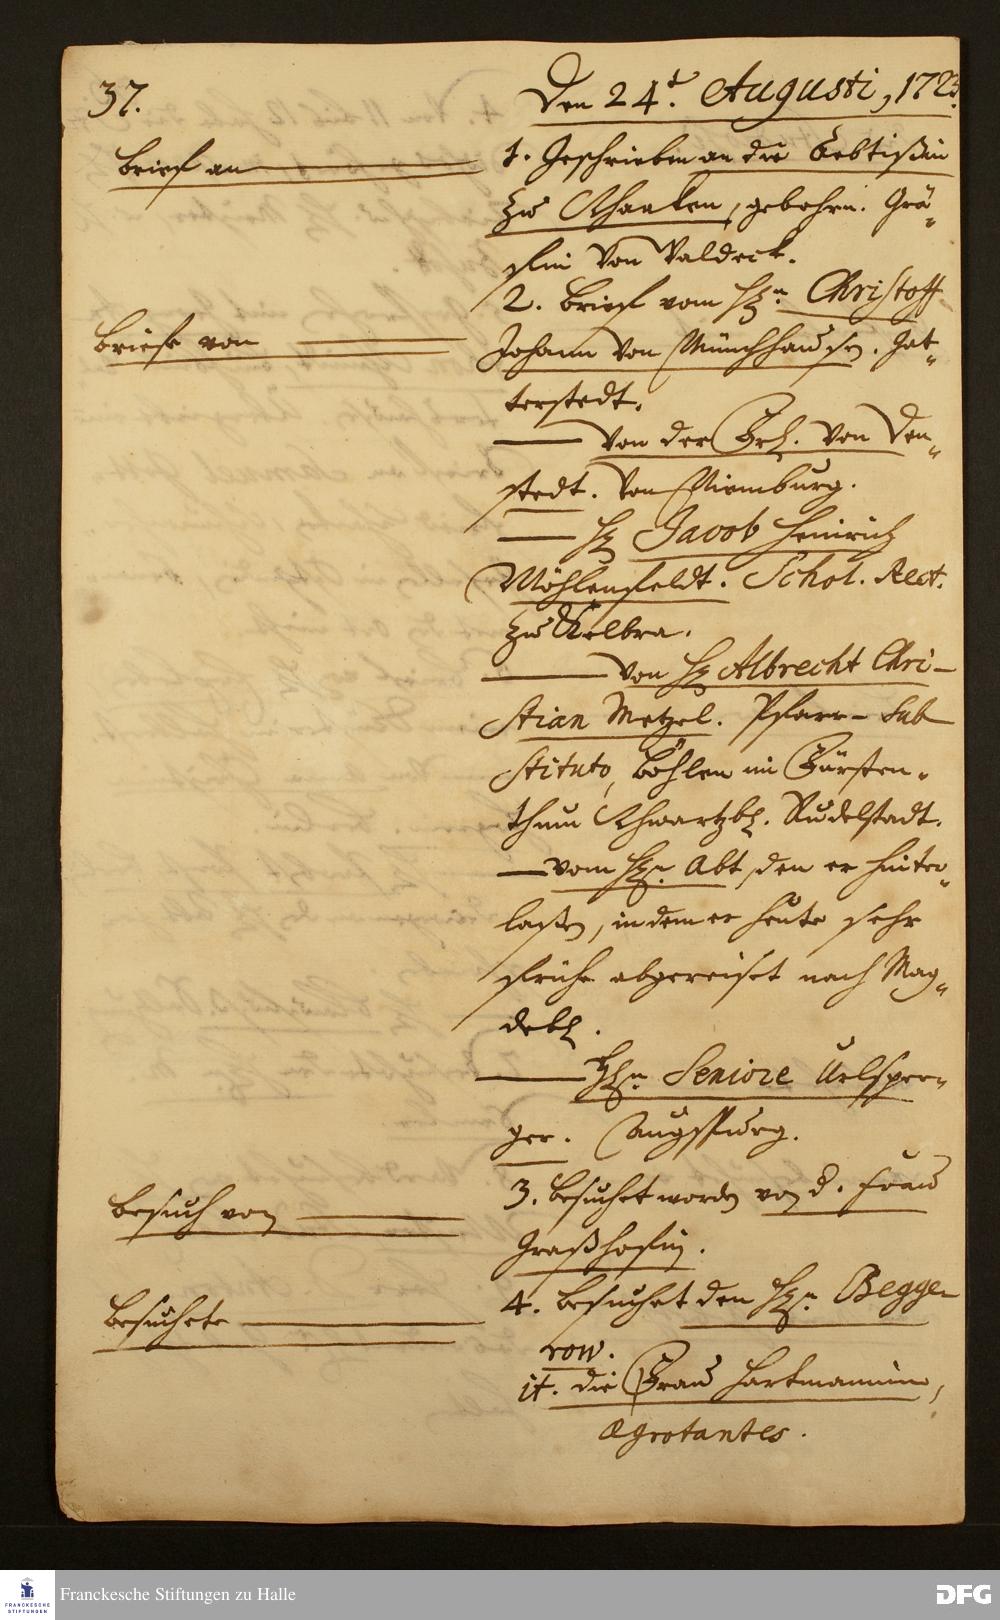 37.
Den 24t. Augusti, 1723.
Brief an
1. Geschrieben an die Aebtißin
zu Schaaken, gebohrn. Grä-
fin von Waldeck.
Briefe von
2. Brief vom Hn. Christoff
Johann von Münchhausen. Gat-
terstedt.
von der Frl. von Den-
stedt. von Niemburg.
H Jacob Heinrich
Möhlenfeldt. Schol. Rect.
zu Kelbra.
von H Albrecht Chri-
stian Metzel. Pfarr- Sub
stituto, Böhlen im Fürsten-
thum Schwartzb. Rudelstadt.
vom Hn. Abt, den er hinter-
laßen, in dem er heute sehr
frühe abgereiset nach Mag-
deb.
Hn. Seniore Urlsper-
ger. Augspurg.
Besuch von
3. Besuchet worden von d. Frau
Graßhofin.
Besuchete
4. Besuchet den Hn. Begge
row.
it. die Frau Hartmannin,
agrotantes.
FRANCKESCHE
STIFTUNGEN
Franckesche Stiftungen zu Halle
DFG